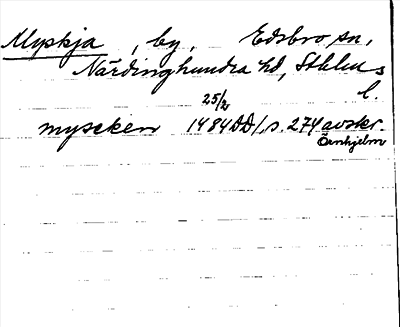 Myskja, by, Edsbro sn,
Närdinghundra hd, Sthlms
l.
25/2
myscken 1484 DD1, s. 274 avskr.
Örnhjelm